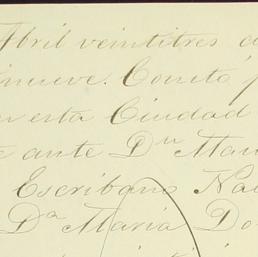 Abril veintitres d
nueve. Consta p
en esta Ciudad
ante Dn Man
Escribano Na
Da Maria Do